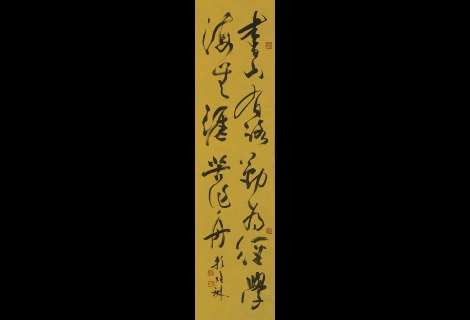 書山有路勤為徑學
海無涯苦作舟